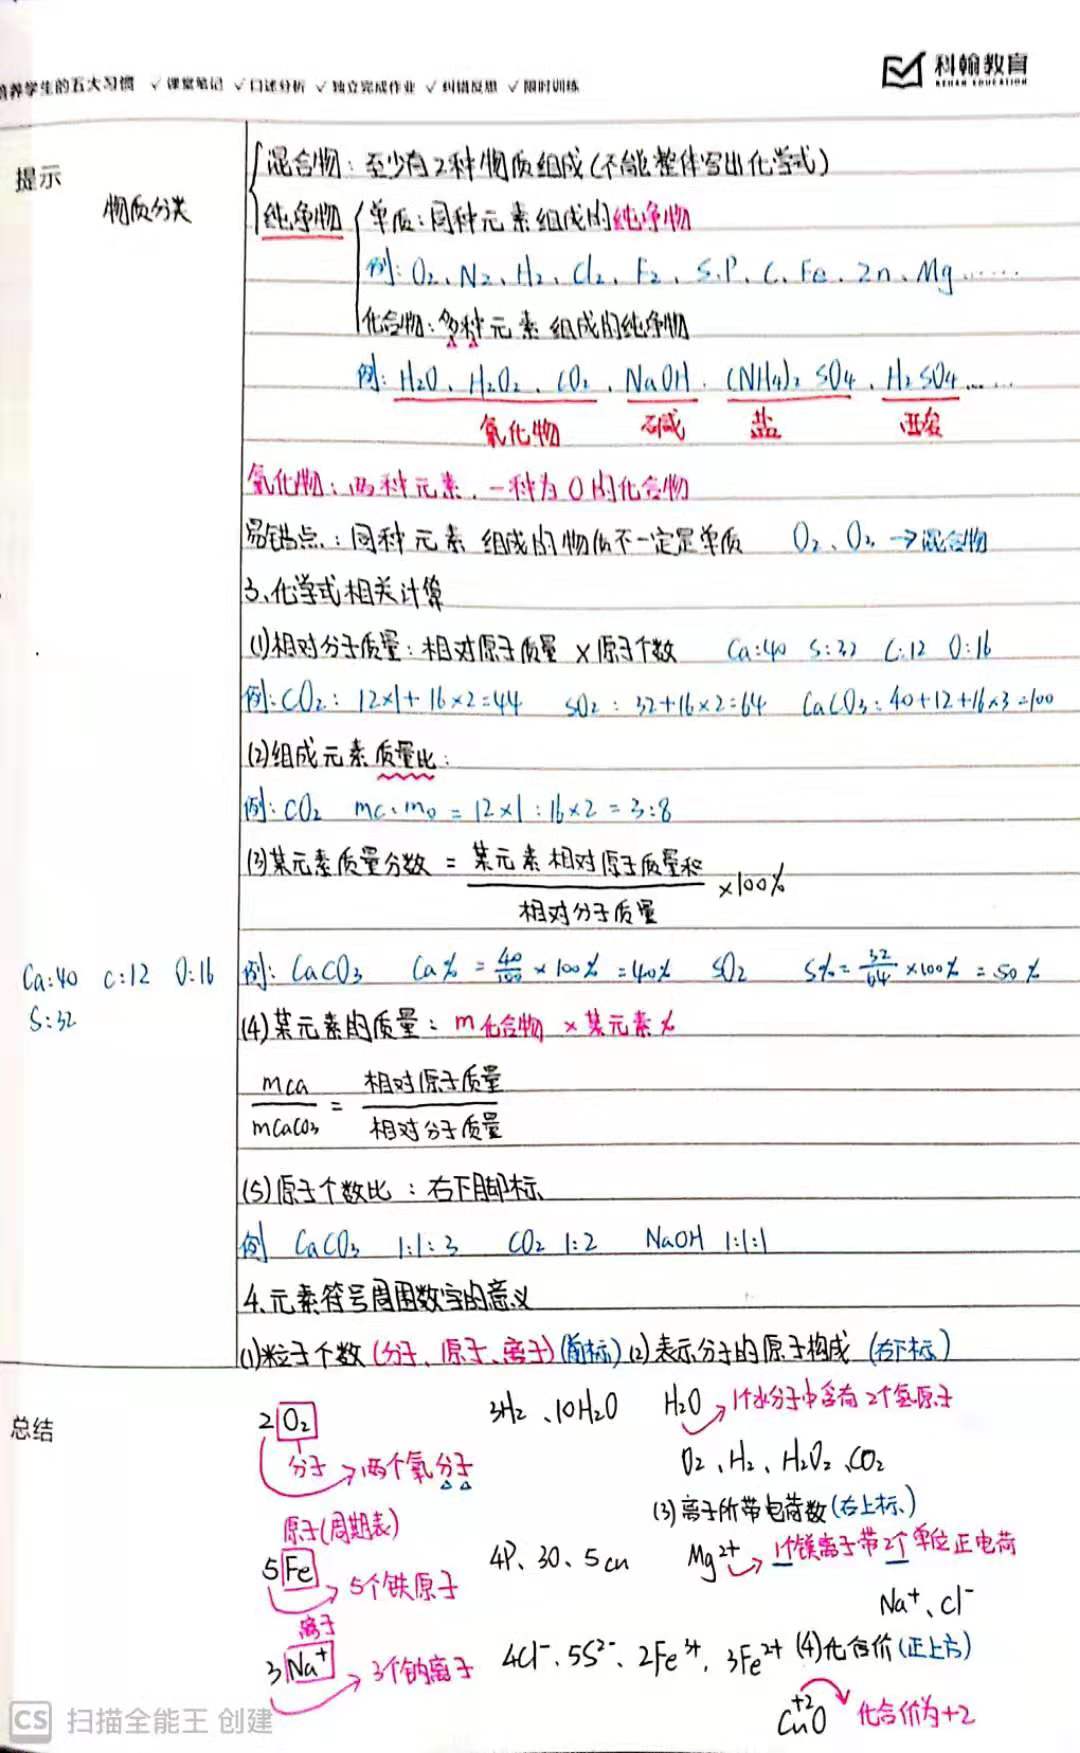 培养学生的五大习惯 √课堂笔记 √口述分析 √独立完成作业 √纠错反思 √限时训练
科翰教育
KEHAN EDUCATION
提示
物质分类
混合物：至少有2种物质组成(不能整体写出化学式)
纯净物 单质：同种元素组成的纯净物
例：O₂、N₂、H₂、Cl₂、F₂、S、P、C、Fe、Zn、Mg……
化合物：多种元素组成的纯净物
例：H₂O、H₂O₂、CO₂、NaOH、(NH₄)₂SO₄、H₂SO₄……
氧化物 碱 盐 酸
氧化物：两种元素，一种为O的化合物
易错点：同种元素组成的物质不一定是单质 O₂、O₃→混合物
3、化学式相关计算
(1)相对分子质量：相对原子质量×原子个数 Ca:40 S:32 C:12 O:16
例：CO₂：12×1+16×2=44 SO₂：32+16×2=64 CaCO₃：40+12+16×3=100
(2)组成元素质量比：
例：CO₂ mC:mO=12×1:16×2=3:8
(3)某元素质量分数 = 某元素相对原子质量和/相对分子质量 ×100%
Ca:40 C:12 O:16
S:32
例：CaCO₃ Ca%=40/100×100%=40% SO₂ S%=32/64×100%=50%
(4)某元素的质量：m化合物×某元素%
mCa/mCaCO₃ = 相对原子质量/相对分子质量
(5)原子个数比：右下脚标
例 CaCO₃ 1:1:3 CO₂ 1:2 NaOH 1:1:1
4、元素符号周围数字的意义
(1)粒子个数(分子、原子、离子)(前标) (2)表示分子的原子构成(右下标)
总结
2O₂ 3H₂、10H₂O H₂O→1个水分子中含有2个氢原子
分子→两个氧分子 O₂、H₂、H₂O₂、CO₂
(3)离子所带电荷数(右上标)
原子(周期表)
5Fe→5个铁原子 4P、3O、5Cu Mg²⁺→1个镁离子带2个单位正电荷
Na⁺、Cl⁻
离子
3Na⁺→3个钠离子 4Cl⁻、5S²⁻、2Fe³⁺、3Fe²⁺ (4)化合价(正上方)
+2
CuO→化合价为+2
CS 扫描全能王 创建